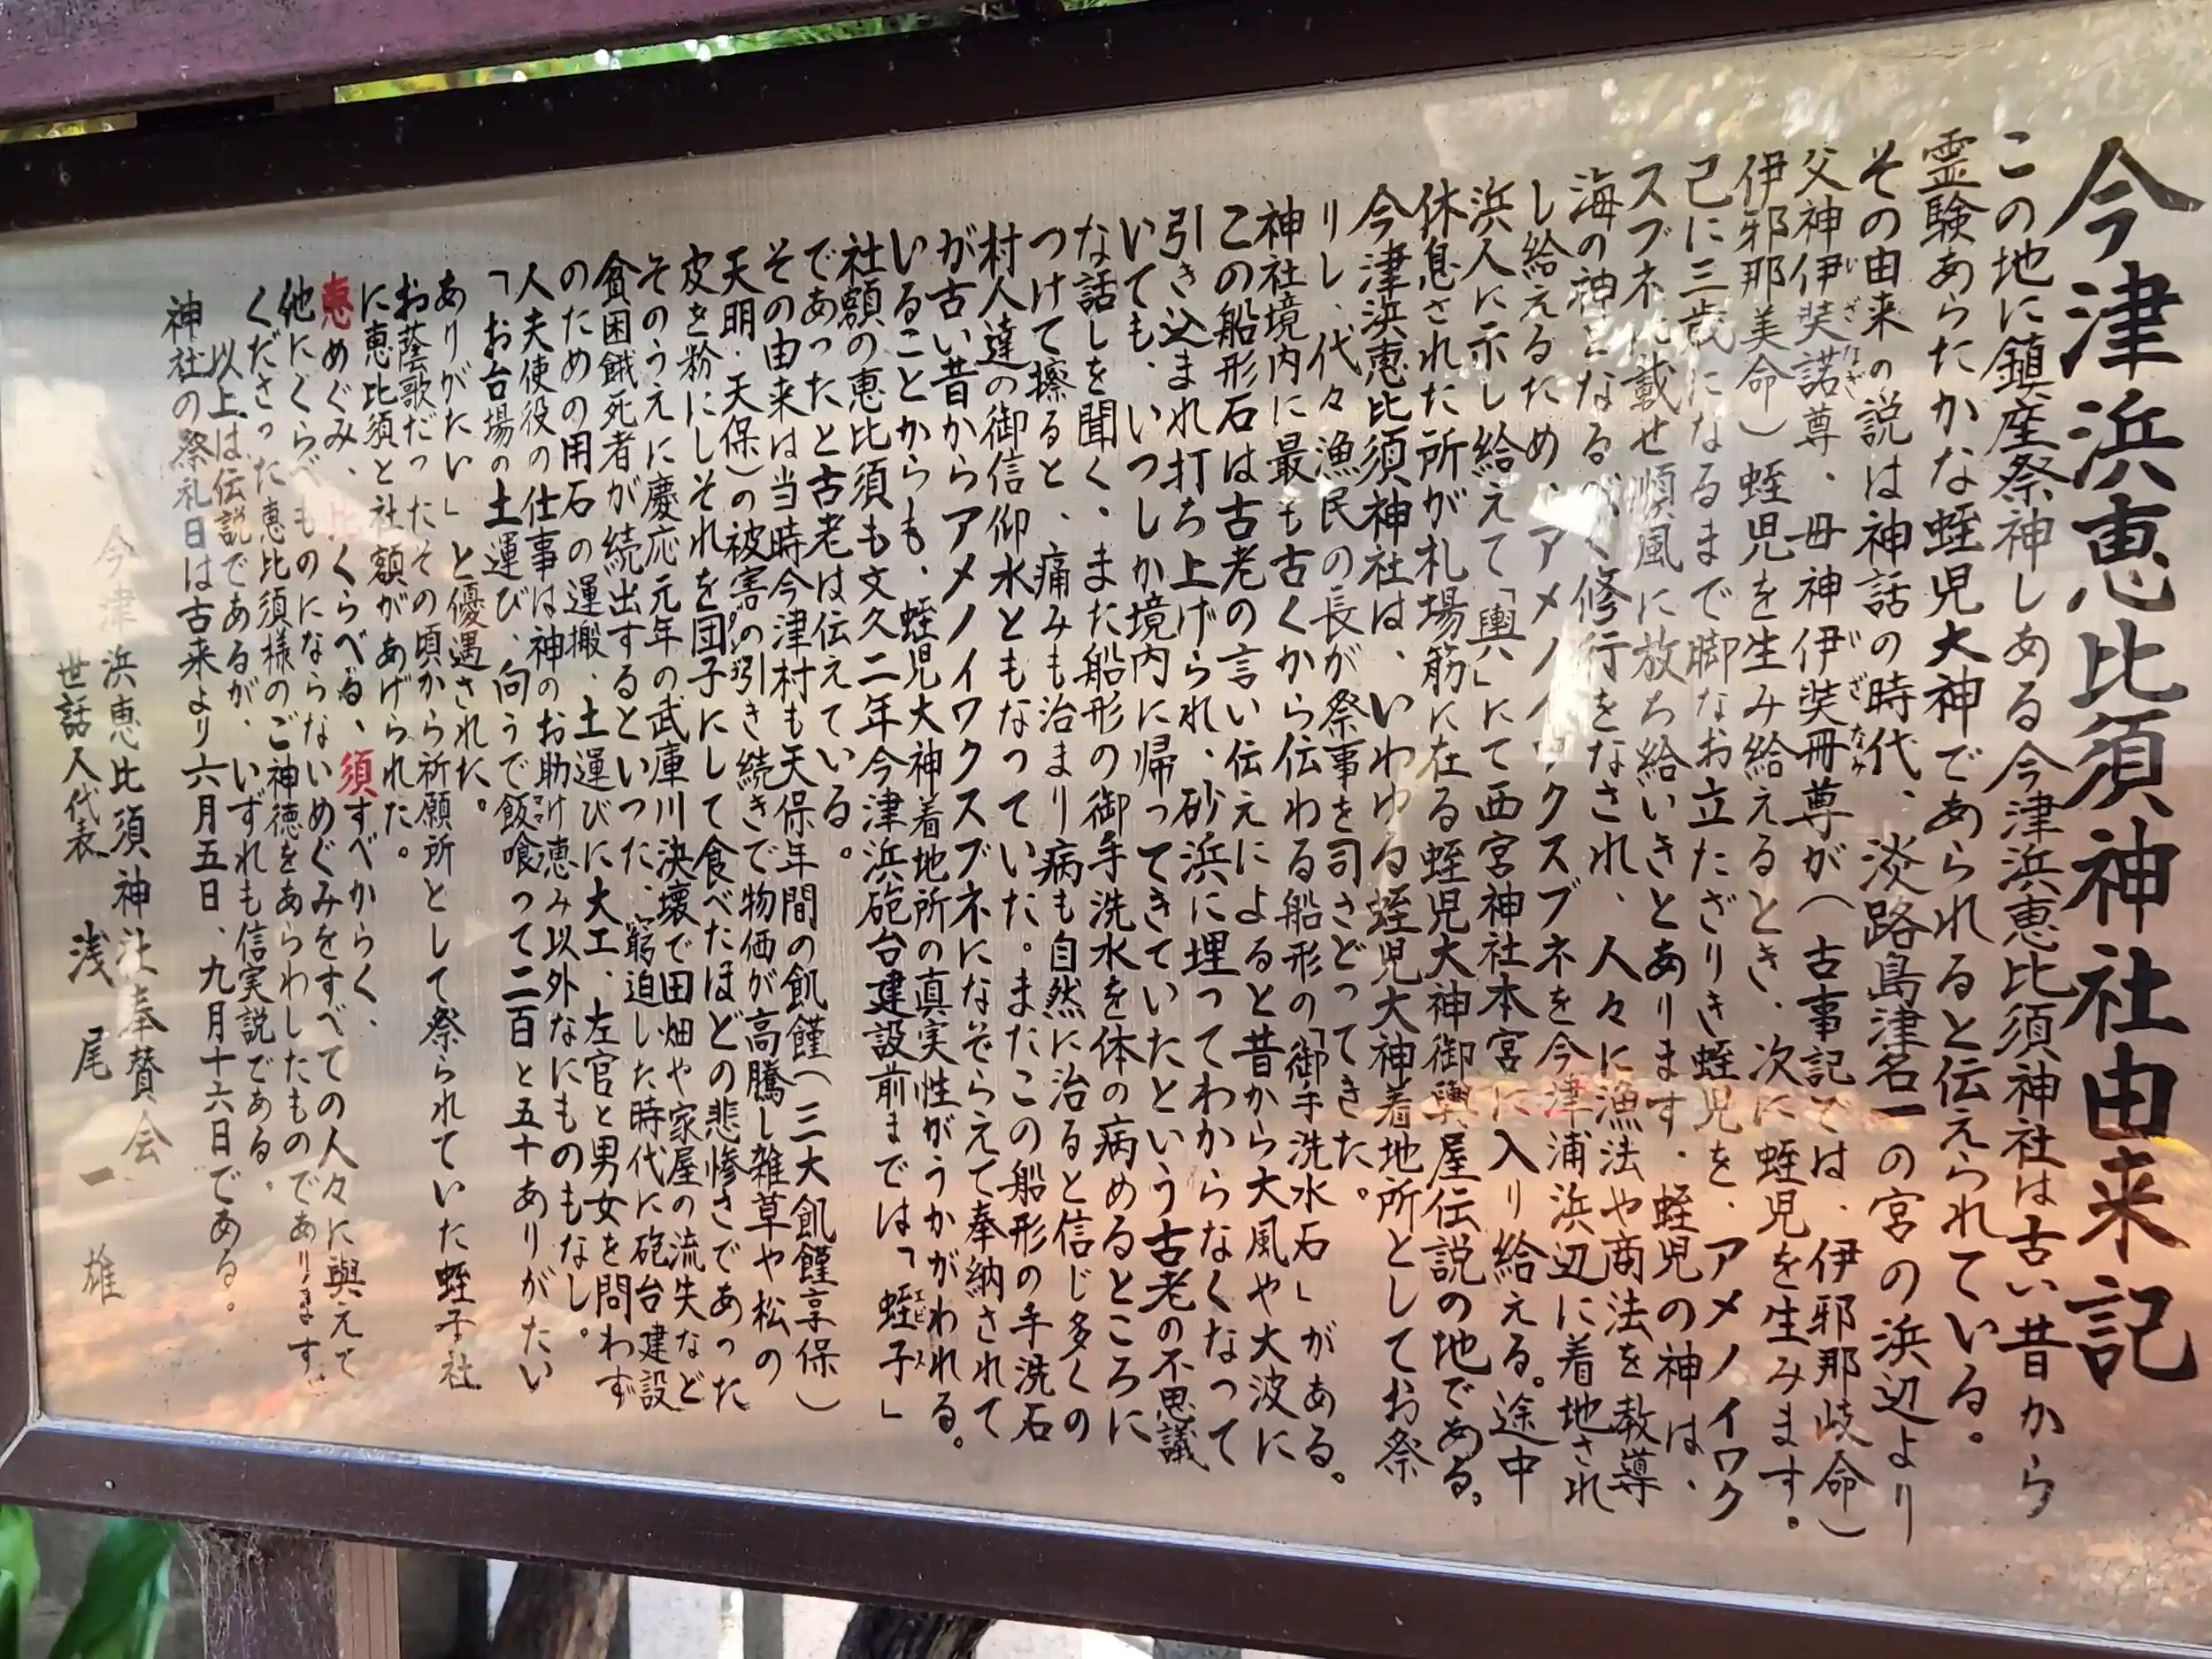 今津浜恵比須神社由来記
この地に鎮座祭神しある今津浜恵比須神社は古い昔から
霊験あらたかな蛭児大神であられると伝えられている。
その由来の説は神話の時代、淡路島津名一の宮の浜辺より
父神伊弉諾尊、母神伊弉冊尊が(古事記では、伊邪那岐命)
伊邪那美命)蛭児を生み給えるとき、次に蛭児を生みます。
己に三歳になるまで脚なお立たざりき蛭児を、アメノイワク
スブネに載せ順風に放ち給いきとあります。蛭児の神は、
海の神となるべく修行をなされ、人々に漁法や商法を教導
し給えるため、アメノイワクスブネを今津浦浜辺に着地され
浜人に示し給えて「輿」にて西宮神社本宮に入り給える。途中
休息された所が札場筋に在る蛭児大神御輿屋伝説の地である。
今津浜恵比須神社は、いわゆる蛭児大神着地所としてお祭
りし、代々漁民の長が祭事を司さどってきた。
神社境内に最も古くから伝わる船形の「御手洗水石」がある。
この船形石は古老の言い伝えによると昔から大風や大波に
引き込まれ打ち上げられ、砂浜に埋ってわからなくなって
いても、いつしか境内に帰ってきていたという古老の不思議
な話しを聞く、また船形の御手洗水を体の病めるところに
つけて擦ると、痛みも治まり病も自然に治ると信じ多くの
村人達の御信仰水ともなっていた。またこの船形の手洗石
が古い昔からアメノイワクスブネになぞらえて奉納されて
いることからも、蛭児大神着地所の真実性がうかがわれる。
社額の恵比須も文久二年今津浜砲台建設前までは「蛭子」
であったと古老は伝えている。
その由来は当時今津村も天保年間の飢饉(三大飢饉享保)
天明・天保)の被害の引き続きで物価が高騰し雑草や松の
皮を粉にしそれを団子にして食べたほどの悲惨さであった
そのうえに慶応元年の武庫川決壊で田畑や家屋の流失など
貧困餓死者が続出するといった、窮迫した時代に砲台建設
のための用石の運搬、土運びに大工、左官と男女を問わず
人夫使役の仕事は神のお助け恵み以外なにものもなし。
「お台場の土運び、向うで飯喰って二百と五十ありがたい
ありがたい」と優遇された。
お蔭歌だったその頃から祈願所として祭られていた蛭子社
に恵比須と社額があげられた。
恵めぐみ、比くらべる、須すべからく、
他にくらべものにならないめぐみをすべての人々に與えて
くださった恵比須様のご神徳をあらわしたものであります。
以上は伝説であるが、いずれも信実説である。
神社の祭礼日は古来より六月五日、九月十六日である。
今津浜恵比須神社奉賛会
世話人代表 浅尾一雄